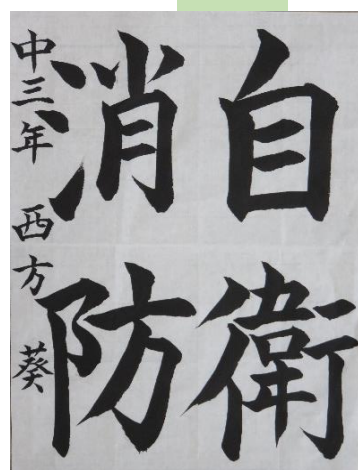 自衛
消防
中三年 西方 葵